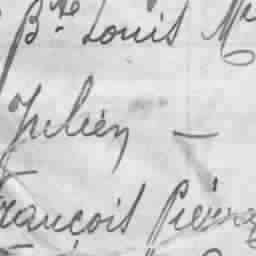 Bte Louis
Julien —
François Pierre